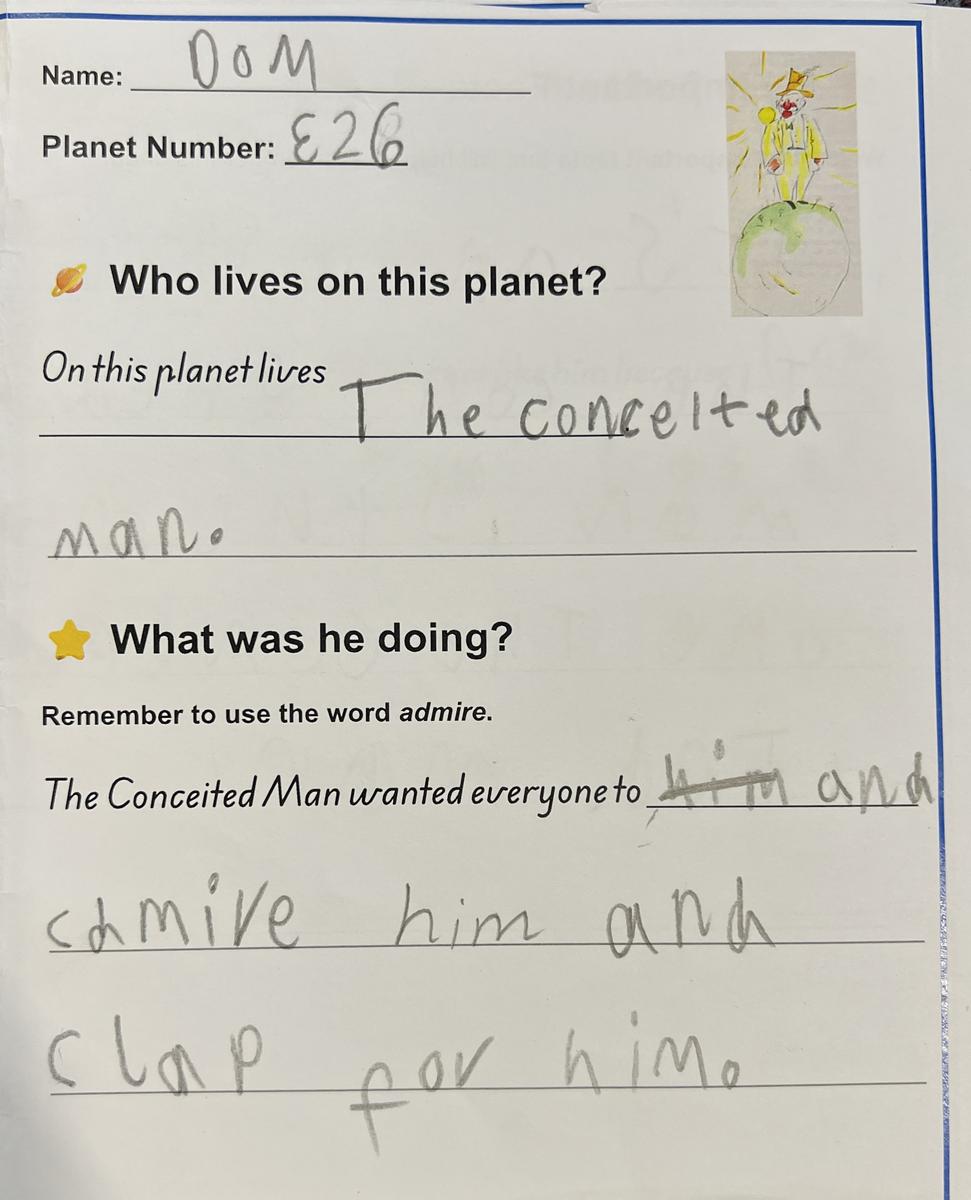 Name: DOM
Planet Number: 326
Who lives on this planet?
On this planet lives
The conceited
man.
What was he doing?
Remember to use the word admire.
The Conceited Man wanted everyone to him and
admire him and
clap for him.